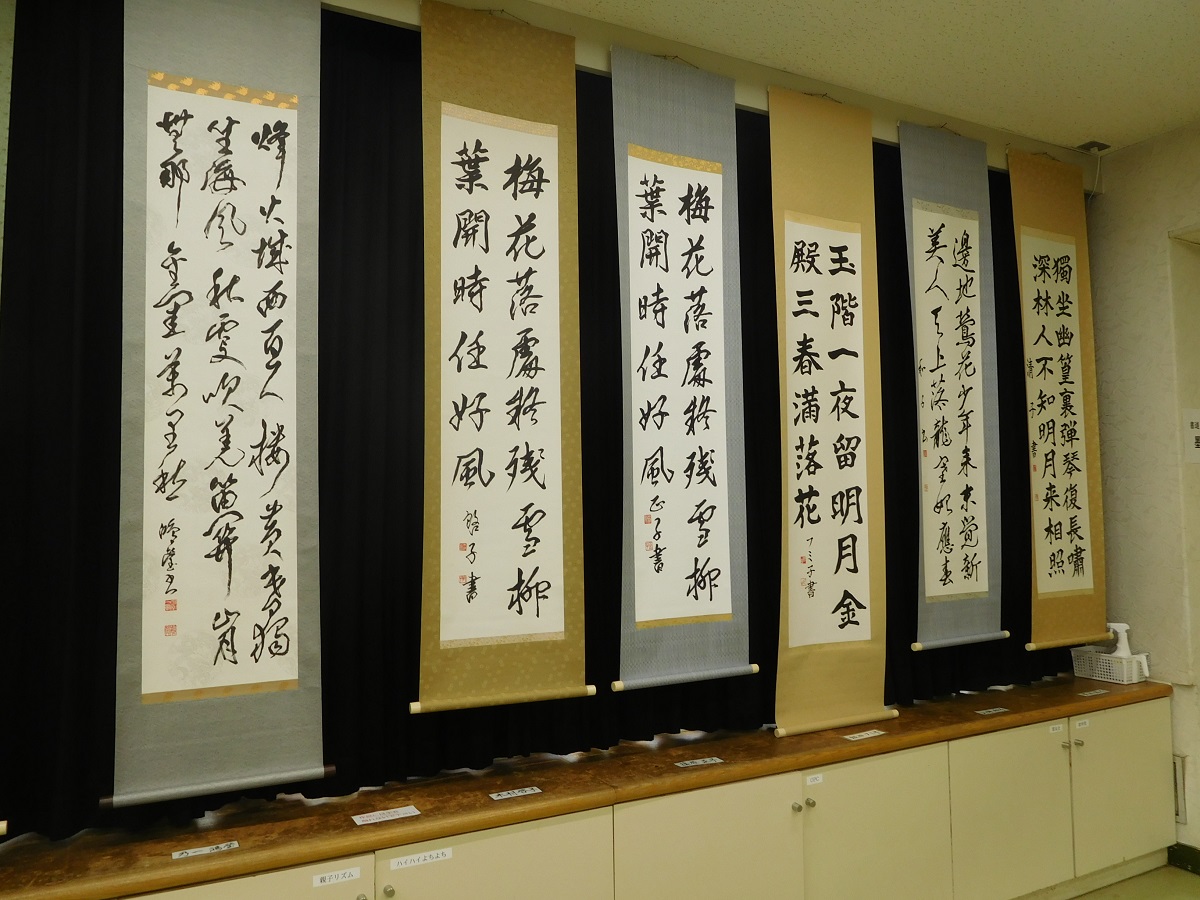 烽火城西百尺樓黄昏獨
坐海風秋更吹羌笛關山月
無那金閨萬里愁
梅花落處疑残雪柳
葉開時任好風
啓子書
梅花落處疑残雪柳
葉開時任好風
正子書
玉階一夜留明月金
殿三春満落花
フミ子書
邊地鶯花少年来未覺新
美人天上落龍塞始應春
和子書
獨坐幽篁裏弾琴復長嘯
深林人不知明月来相照
清子書
木村啓子
親子リズム
ハイハイよちよち